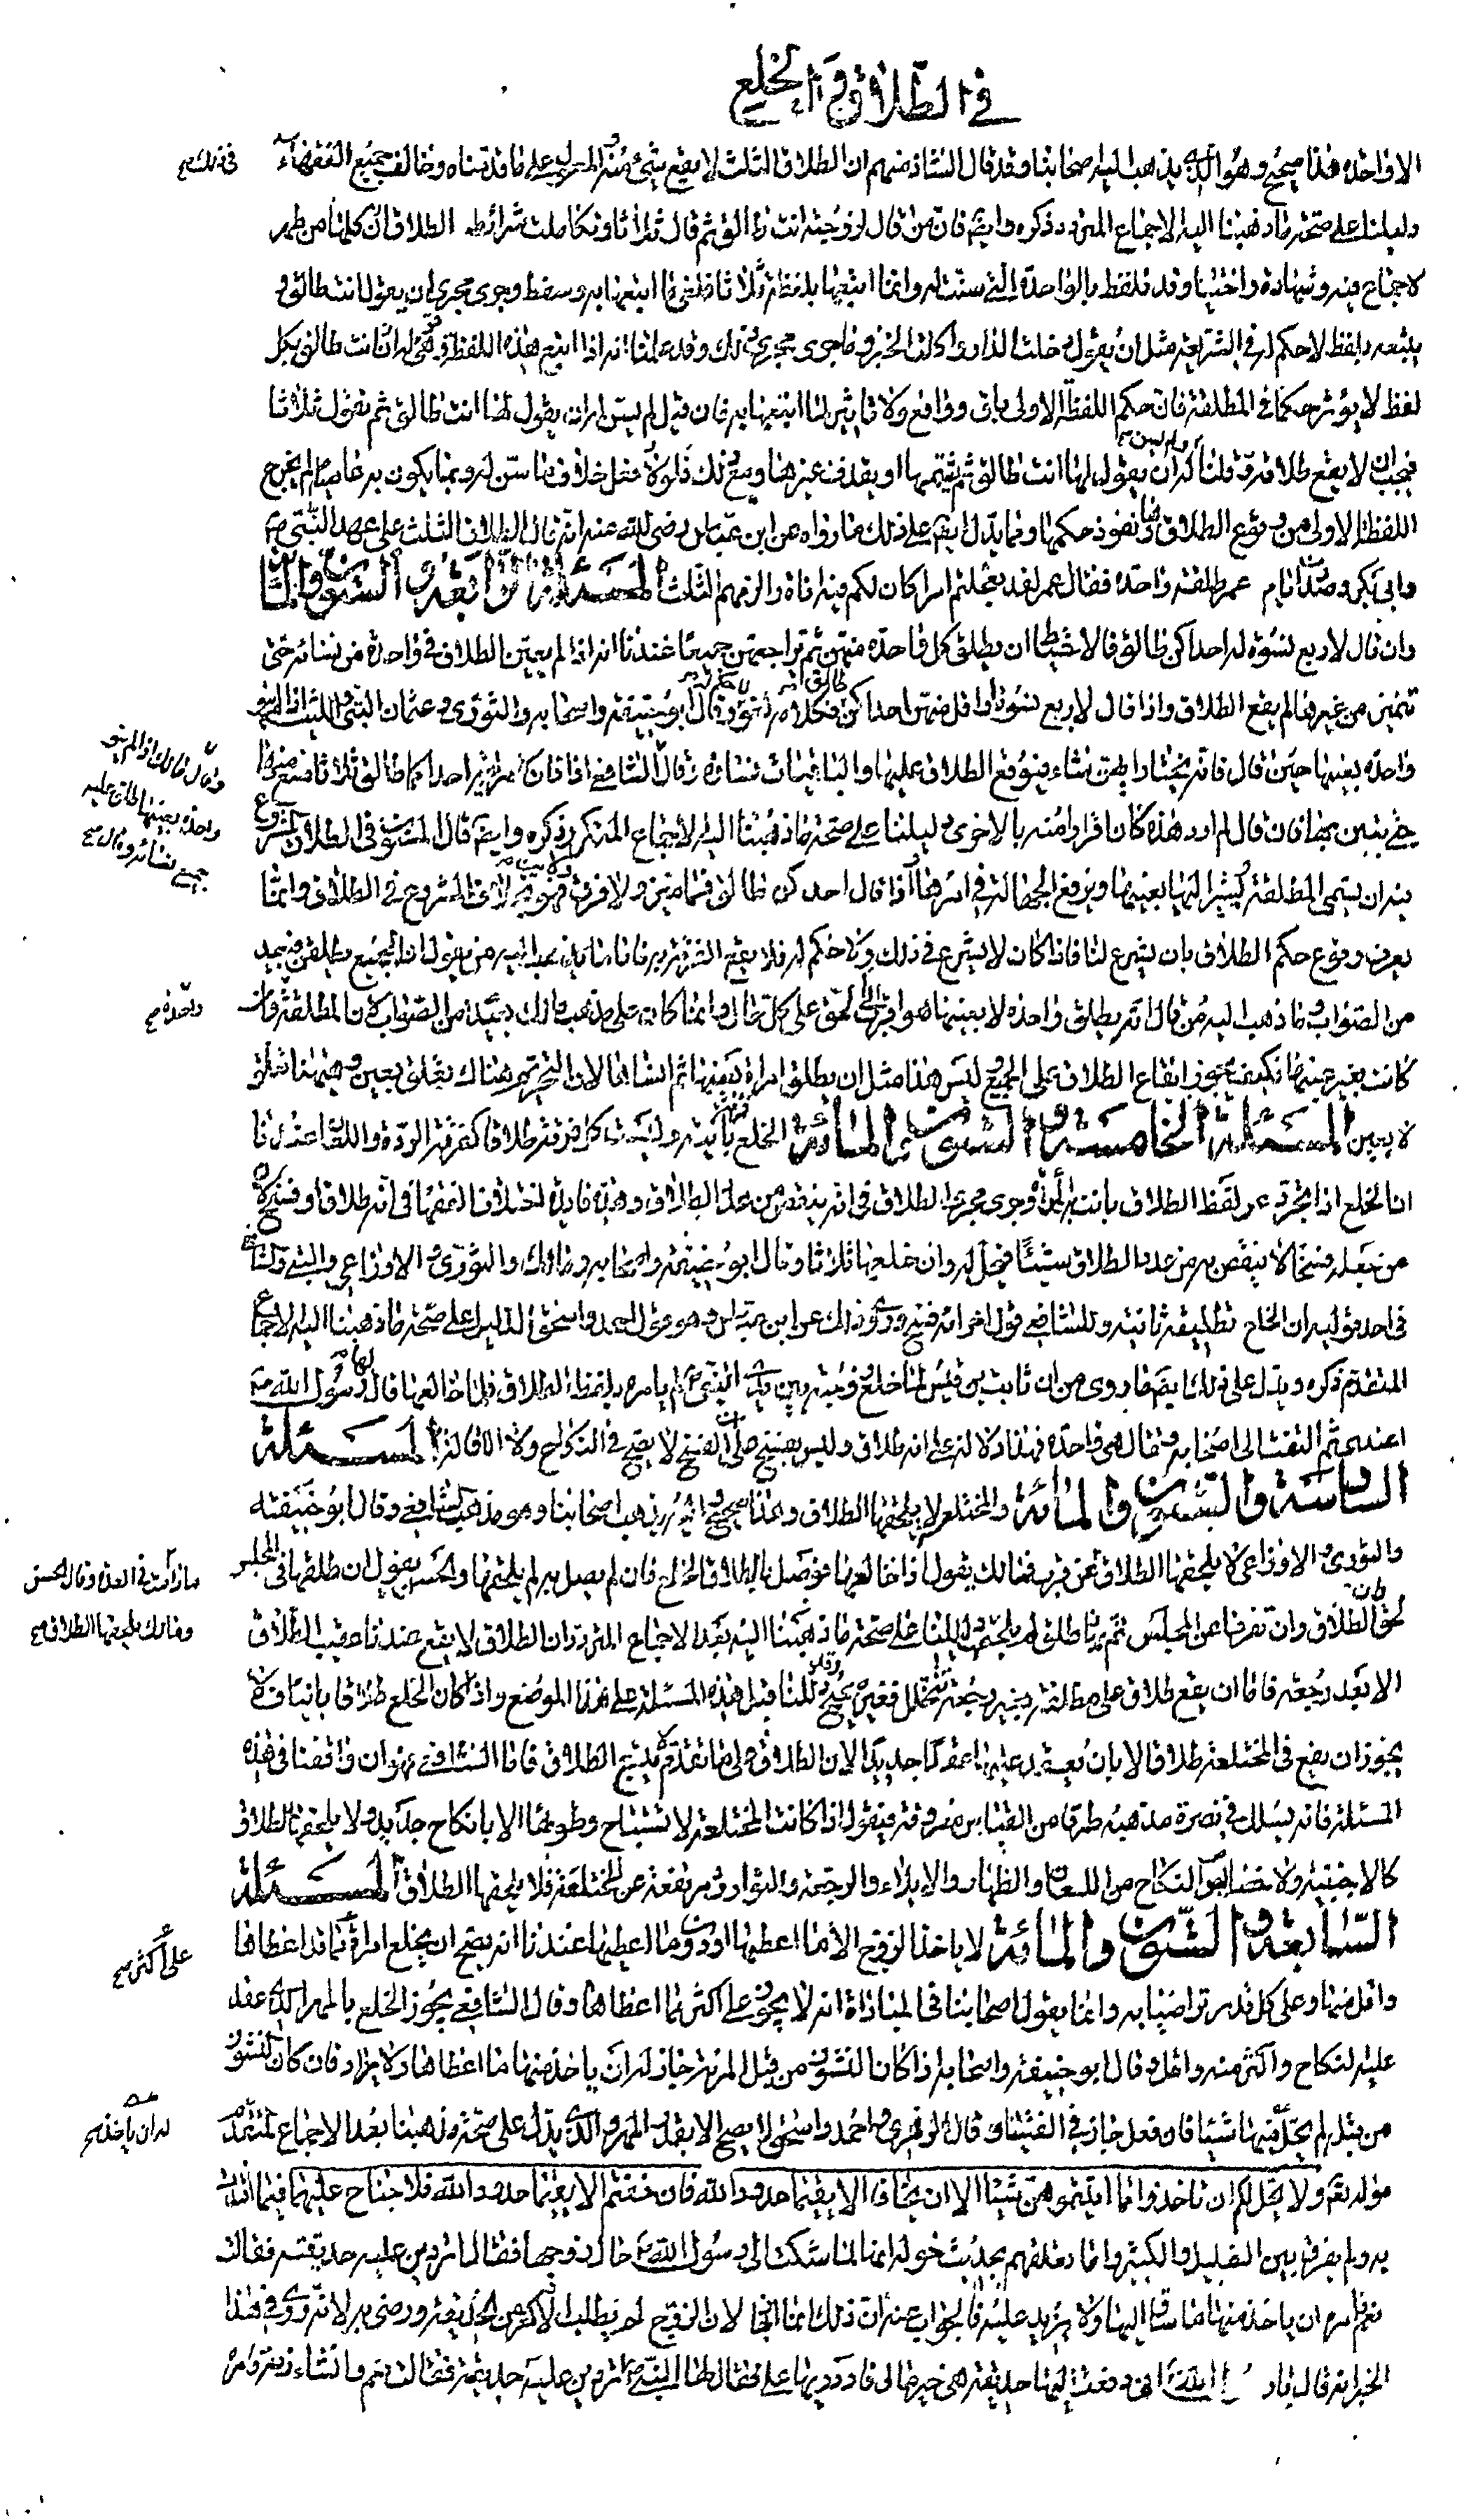 في الطلاق والخلع
الا واحدة هذا صحيح وهو الذي يذهب اليه اصحابنا وقد قال الشاذ منهم ان الطلاق الثلث لا يقع شيء منه والمعول على ما قدمناه وخالف جميع الفقهاء
في ذلك صح
دليلنا على صحة ما ذهبنا اليه الاجماع المتردد ذكره وايضا فان من قال لزوجته انت طالق ثم قال ثلاثا وتكاملت شرائط الطلاق ان كلها من طهر
لا جماع فيه وشهادة واختيار وقد تلفظ بالواحدة التي سنت له وانما اتبعها بلفظة ثلاثا فلغى ما اتبعها به وسقط وجرى مجرى ان يقول انت طالق و
يتبعه بلفظ لا حكم له في الشريعة مثل ان يقول دخلت الدار واكلت الخبز وما جرى مجرى ذلك وقد علمنا انه اذا اتبع هذه اللفظة وهي انت طالق بكل
لفظ لا يؤثر حكما في المطلقة فان حكم اللفظ الاولى باق وواقع ولا تاثير لما اتبعها به فان قيل لم يسن له ان يقول لها انت طالق ثم يقول ثلاثا
فيجب ان لا يقع طلاقه قلنا ولم يسن له ان يقول لها انت طالق ثم يشتمها او يقذف غيرها ومع ذلك فلو فعل خلاف ما سن له وبما يكون به عاصيا لم يخرج
اللفظ الاولى من وقوع الطلاق بها ونفوذ حكمها ومما يدل ايضا على ذلك ما رواه عن ابن عباس رضي الله عنه انه قال الطلاق الثلث على عهد النبي ص
وابي بكر وصدرا من ايام عمر طلقة واحدة فقال عمر لقد تعجلتم امرا كان لكم فيه اناة والزمهم الثلث المسئلة الرابعة والستون والمائة
وان قال لاربع نسوة له احداكن طالق فالاحتياط ان يطلق كل واحدة منهن ثم يراجعهن جميعا عندنا انه اذا لم يعين الطلاق في واحدة من نسائه حتى
تتميز من غيرها لم يقع الطلاق واذا قال لاربع نسوة او اقل منهن احداكن طالق فكلامه لغو لا حكم له وقال ابو حنيفة واصحابه والثوري وعثمان البتي والليث اذا لم ينو
واحدة بعينها حين قال فانه يختار ايهن شاء فيوقع الطلاق عليها والباقيات نساؤه وقال الشافعي اذا قال لامرأتيه احداكما طالق ثلاثا منع منهما
وقال مالك اذا لم ينو
واحدة بعينها طلق عليه
جميع نسائه وقال صح
حتى يتبين فان قال لم ارد هذه كان اقرارا منه بالاخرى دليلنا على صحة ما ذهبنا اليه الاجماع المتكرر ذكره وايضا قال المسنون في الطلاق المشروع
فيه ان يسمي المطلقة يشير اليها بعينها ويرفع الجهالة في امرها اذا قال احدكن طالق فما ميز ولا بين ولا فرق فهو لاغ المشروع في الطلاق وانما
يعرف وقوع حكم الطلاق بان يشرع لنا فاذا كان لا يشرع في ذلك ولا حكم له فلا يقع الفرقة به فاما ما يذهب اليه من يقول ان الجميع يطلقن فبعيد
من الصواب وما ذهب اليه من قال انه يطلق واحدة لا بعينها هو اقرب الى الحق على كل حال وانما كان على مذهب مالك بعيدا من الصواب لان المطلقة وان
واحدة صح
كانت بغير عينها فكيف يجوز ايقاع الطلاق على الجميع وليس هذا مثل ان يطلق امراة بعينها ثم انساها لان التحريم هناك تعلق بعين وهيهنا تعلق
لا بعين المسئلة الخامسة والستون والمائة الخلع فرقة بائنة وليست كل فرقة طلاقا كفرقة الردة واللعان عندنا
ان الخلع اذا تجرد عن لفظ الطلاق بانت به المرأة وجرى مجرى الطلاق في انه ينقص من عدد الطلاق وهذه فائدة اختلاف الفقهاء في انه طلاق او فسخ لان
من جعله فسخا لا ينقص به من عدد الطلاق شيئا فيحل له وان خلعها ثلاثا وقال ابو حنيفة واصحابه ومالك والثوري والاوزاعي والبتي والشافعي
في احد قوليه ان الخلع تطليقة ثانية وللشافعي قول اخر انه فسخ وروي ذلك عن ابن عباس وهو قول احمد واسحق الدليل على صحة ما ذهبنا اليه الاجماع
المتقدم ذكره ويدل على ذلك ايضا ما روي من ان ثابت بن قيس لما خلع زوجته بين يدي النبي ص لم يامره بلفظ الطلاق فلما خالعها قال لها رسول الله ص
اعتدي ثم التفت الى اصحابه وقال هي واحدة فهذا دلالة على انه طلاق وليس بفسخ على ان الفسخ لا يصح في النكاح ولا الاقالة المسئلة
السادسة والستون والمائة والمختلعة لا يلحقها الطلاق وهذا صحيح واليه يذهب اصحابنا وهو مذهب الشافعي وقال ابو حنيفة
والثوري والاوزاعي لا يلحقها الطلاق عن قرب فمالك يقول اذا خالعها فوصل بالطلاق الخلع فان لم يصل به لم يلحقها والحسن يقول ان طلقها في المجلس
ما دامت في العدة وقال الحسن
ومالك يلحقها الطلاق صح
لحق الطلاق وان تفرقا عن المجلس ثم طلق لم يلحقها دليلنا على صحة ما ذهبنا اليه بعد الاجماع المتردد ان الطلاق لا يقع عندنا عقيب الطلاق
الا بعد رجعة فاما ان يقع طلاق على مطلقة بغير رجعة تتخلل فغير صحيح وقد دللنا قبل هذه المسئلة على هذا الموضع واذا كان الخلع طلاقا بائنا فلا
يجوز ان يقع في المختلعة طلاق الا بان يعقد عليها عقدا جديدا لان الطلاق على ما تقدم لا يتبع الطلاق فاما الشافعي فهو ان وافقنا في هذه
المسئلة فانه يسلك في نصرة مذهبه طرقا من القياس معروفة فيقول اذا كانت المختلعة لا تستباح وطؤها الا بنكاح جديد ولا يلحقها الطلاق
كالاجنبية ولا خصائص النكاح من اللعان والظهار والايلاء والرجعة والتوارث مرتفعة عن المختلعة فلا يلحقها الطلاق المسئلة
السابعة والستون والمائة لا ياخذ الزوج الا ما اعطيها او دون ما اعطيها عندنا انه يصح ان يخلع امراة مما قد اعطاها
على اكثر صح
واقل منها وعلى كل قدر تراضيا به وانما يقول اصحابنا في المباراة انه لا يجوز على اكثر مما اعطاها وقال الشافعي يجوز الخلع بالمهر الذي عقد
عليه لنكاح واكثر منه واقل وقال ابو حنيفة واصحابه اذا كان النشوز من قبل المراة جاز له ان ياخذ منها ما اعطاها ولا يزاد فان كان النشوز
من قبله لم يحل منها شيئا فان فعل جاز في القضاء وقال الزهري واحمد واسحق لا يصح الا بقدر المهر والذي يدل على صحة مذهبنا بعد الاجماع المتقدم
له ان ياخذ صح
قوله تعالى ولا يحل لكم ان تاخذوا مما اتيتموهن شيئا الا ان يخافا الا يقيما حدود الله فان خفتم الا يقيما حدود الله فلا جناح عليهما فيما افتدت
به ولم يفرق بين القليل والكثير واما تعلقهم بحديث خولة انها لما شكت الى رسول الله ص حال زوجها فقال اتردين عليه حديقته فقالت
نعم فامره ان ياخذ منها ما ساق اليها ولا يزيد عليه فالجواب عنه ان ذلك انما لان الزوج لم يطلب الاكثر من الحديقة ورضي به لانه روي في هذا
الخبر انه قال يا رسول الله اني دفعت اليها حديقة هي خير مالي فارددها علي فقال لها النبي ص اتردين عليه حديقته فقالت نعم وان شاء زدته وامره